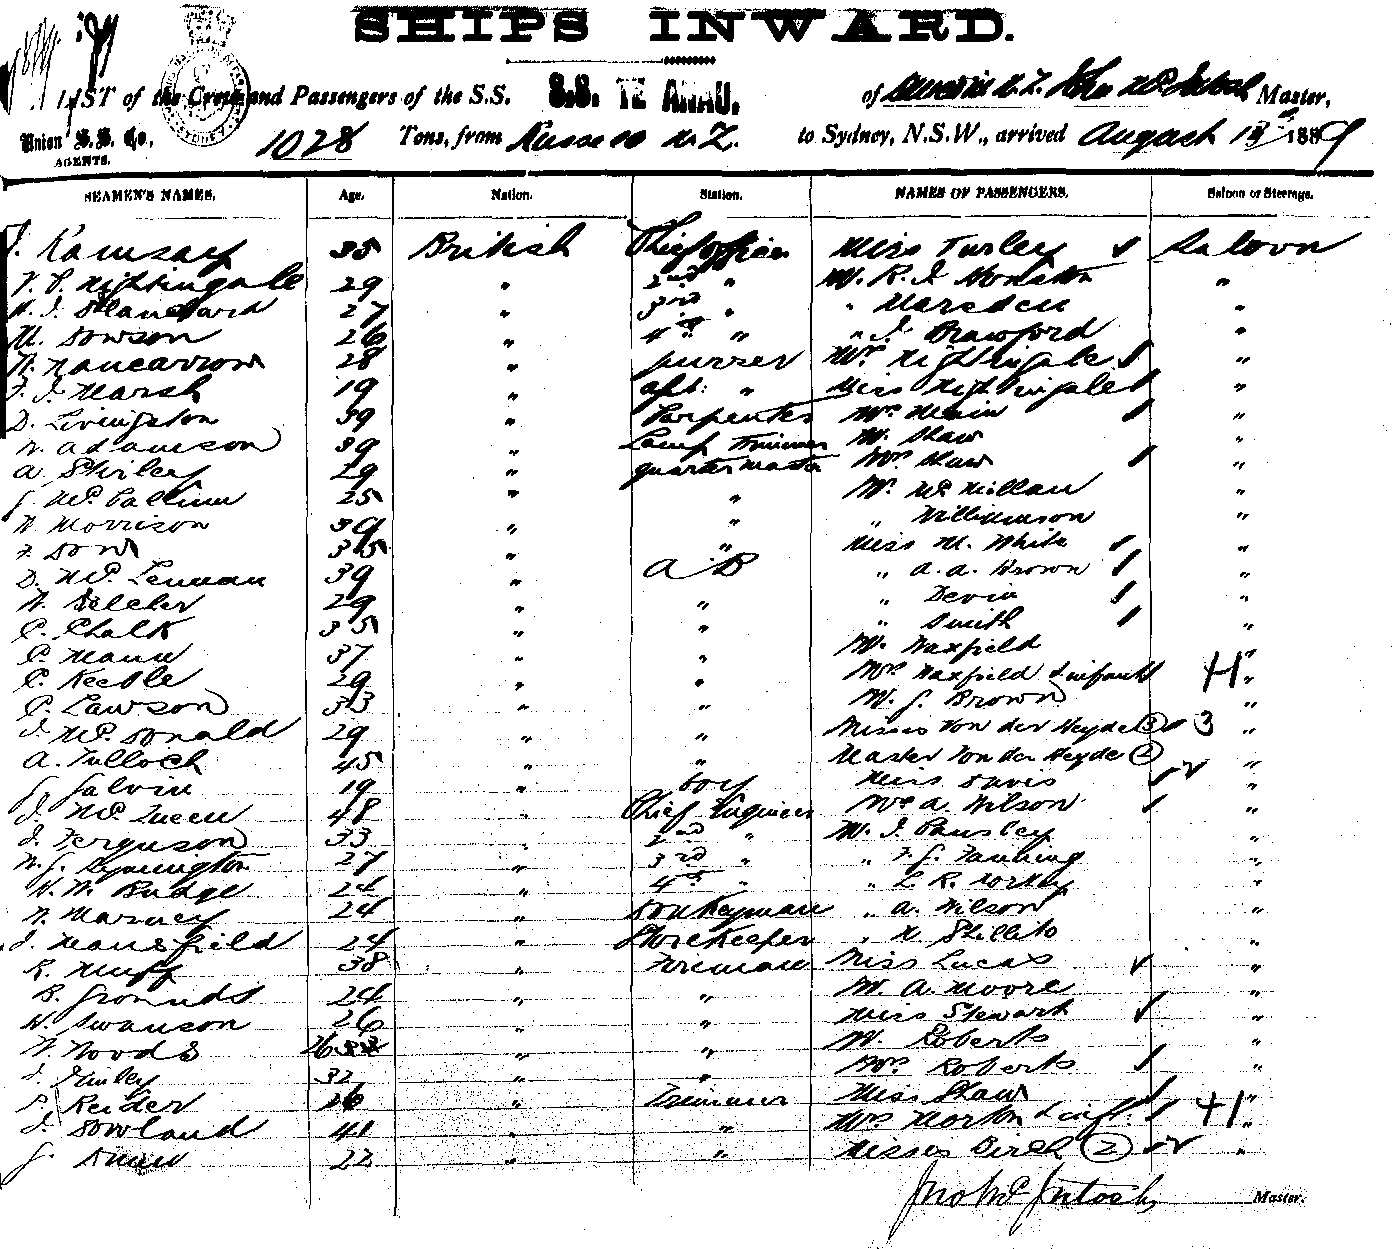 SHIPS INWARD.
LIST of the Crew and Passengers of the S.S. S.S. TE ANAU. of Dunedin N.Z. Jno McIntosh, Master,
Union S.S. Co, AGENTS. 1028 Tons, from Russell N.Z. to Sydney, N.S.W., arrived August 1889
SEAMEN'S NAMES. Age. Nation. Station. NAMES OF PASSENGERS. Saloon or Steerage.
J. Ramsay 35 British Chief officer Miss Turley Saloon
Nightingale 29 " 2nd " Mr. R. J. "
Blanchard 27 " 3rd " " Marsden "
M. Dowson 26 " 4th " " J. Brawford "
N. Nancarrow 28 " purser Mrs Nightingale "
F. J. Marsh 19 " asst: " Miss Nightingale "
D. Livingston 39 " Carpenter Mrs Main "
W. Adamson 39 " Lamp Trimmer Mr. Shaw "
A. Shirley 29 " quartermaster Mrs Shaw "
J. McCallum 25 " " Mr. McMillan "
N. Morrison 39 " " " Williamson "
F. Dow 35 " " Miss M. White "
D. McLennan 39 " A B " A. A. Brown "
29 " " " Devin "
C. Chalk 35 " " " Smith "
C. Mann 37 " " Mr. Waxfield "
C. Keeble 29 " " Mrs Waxfield & infant +1 "
C. Lawson 33 " " Mr. G. Brown "
J. McDonald 29 " " Misses Von der Heyde (3) 3 "
A. Tulloch 45 " " Master Von der Heyde (2) "
G. Galvin 19 " boy Miss Davis "
J. McQueen 48 " Chief Engineer Mrs A. Wilson "
J. Ferguson 33 " 2nd " Mr. J. Pansley "
W. G. Lymington 27 " 3rd " " F. G. Fanning "
H. W. Budge 24 " 4th " " L. R. "
N. Marney 24 " Donkeyman " A. Wilson "
J. Mansfield 24 " Storekeeper " N Shillito "
R. Muff 38 " Fireman Miss Lucas "
B. Grounds 24 " " Mr. A. Moore "
W. Swanson 26 " " Miss Stewart "
W. Woods 26 " " Mr. Roberts "
J. Finley 32 " " Mrs Roberts "
Reider 26 " Trimmer Miss Shaw "
J. Dowland 41 " " Mrs Morton & inft. +1 "
G. 22 " " Misses Birch (2) "
Jno McIntosh Master.